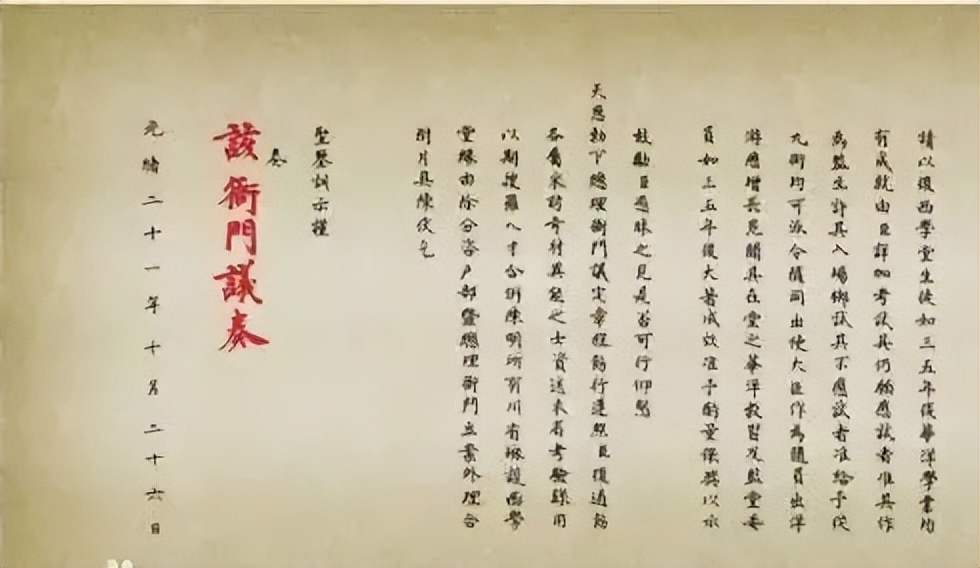 請以後西學堂生徒如三五年後華洋學業均
有成就由臣詳加考試其仍願應試者准其作
為監生許其入場鄉試其不應試者准給予從
九銜均可派令隨同出使大臣作為隨員出洋
游歷增長見聞其在堂之華洋教習及監堂委
員如三五年後大著成效准予酌量保獎以示
鼓勵臣愚昧之見是否可行仰懇
天恩勅下總理衙門議定章程飭行遵照臣復通飭
各屬采訪奇材異能之士資送來省考驗錄用
以期搜羅人才合併陳明所有川省
堂緣由除分咨戶部暨總理衙門立案外理合
附片具陳伏乞
聖鑒訓示謹
奏
該衙門議奏
光緒二十一年十月二十六日